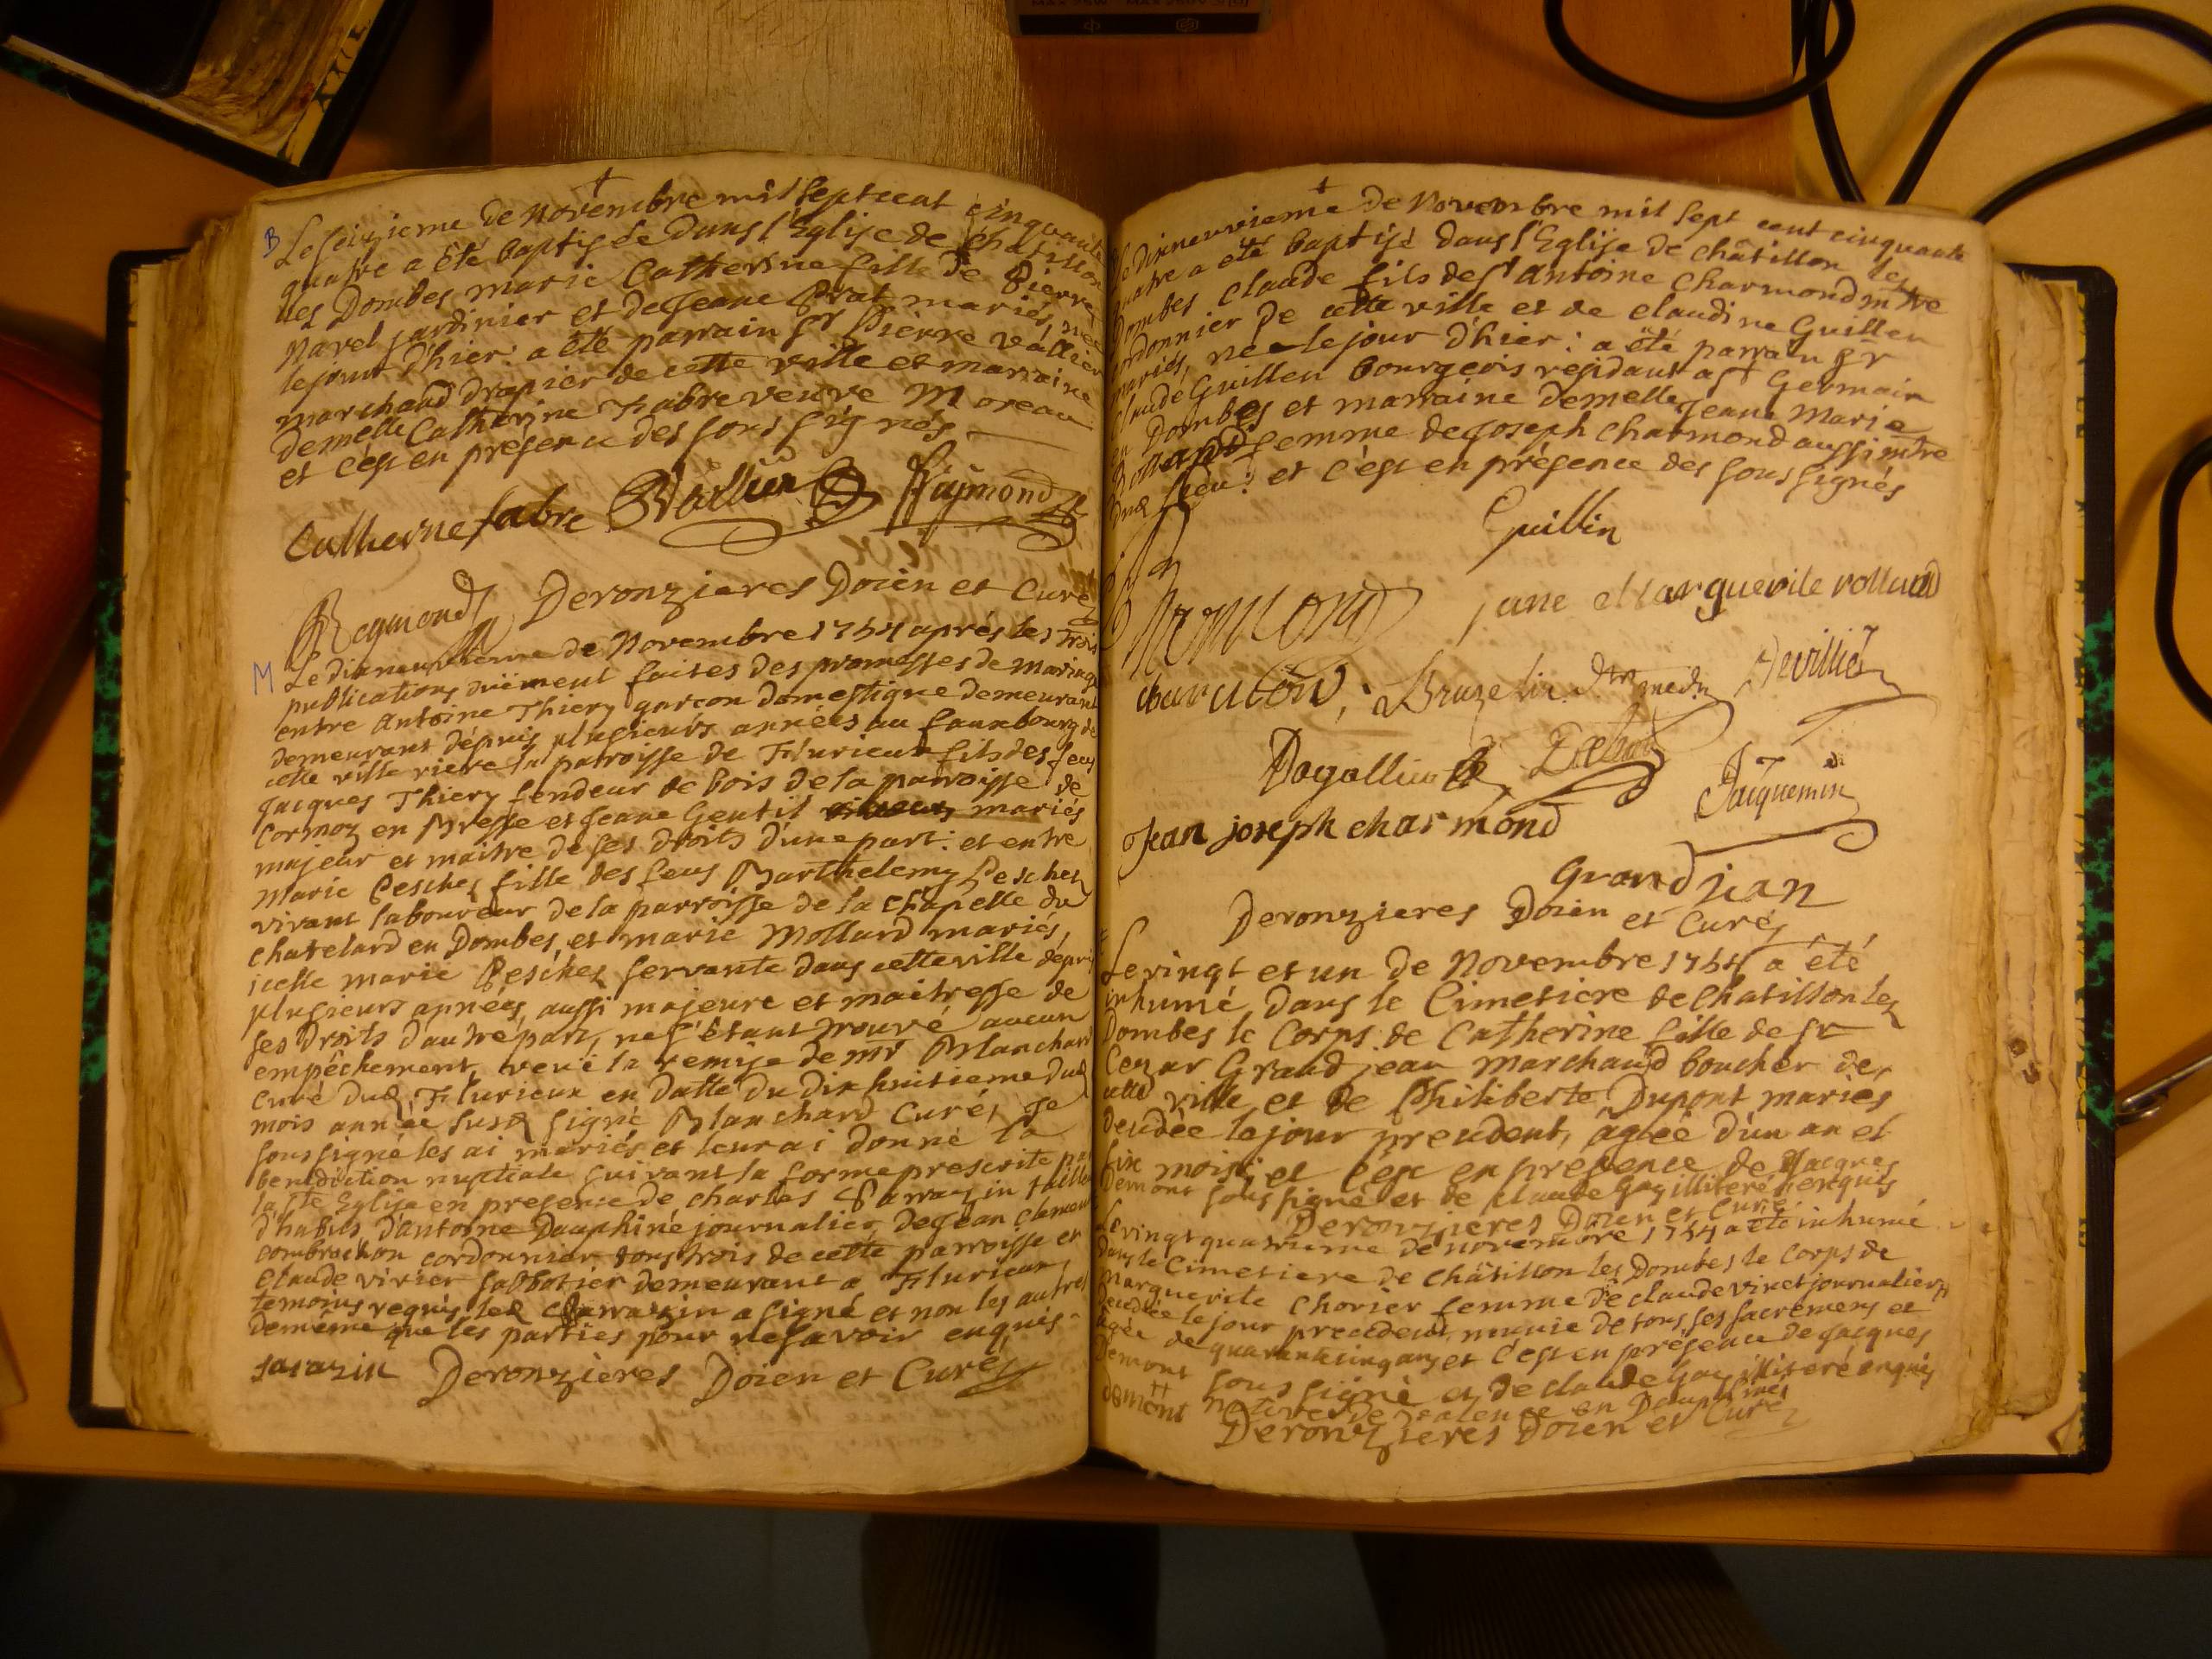 B
Le seizieme de Novembre mil sept cent cinquante
quatre a été baptisée dans l'Eglise de Châtillon
les Dombes marie Catherine fille de Pierre
Navel jardinier et de Jeane Prat mariés, née
le jour d'hier: a été parrain Sr Pierre Vallier
marchand drapier de cette ville et marraine
demelle Catherine Fabre veuve Moreau
et c'est en présence des sous signés
Catherine fabre Vallier Raÿmond
Regmond Deronzieres Doïen et Curé
M
Le dixneuvieme de Novembre 1754 aprés les trois
publications düement faites des promesses de Mariage
entre Antoine Thiery garcon domestique demeurant
demeurant dépuis plusieurs années au fauxbourg de
cette ville riere la parroisse de Flurieux fils des feus
Jacques Thiery fendeur de bois de la parroisse de
Cormoz en Bresse et Jeane Gentil mariés
majeur et maitre de ses droits d'une part: et entre
Marie Pesches fille des feus Barthelemy Pesches
vivant laboureur de la parroisse de la Chapelle du
chatelard en Dombes, et marie Mollard mariés,
icelle marie Pesches servante dans cette ville dépuis
plusieurs années, aussi majeure et maitresse de
ses droits d'autre part, ne s'étant trouvé aucun
empêchement, veu la remise de mr Blanchard
curé dud. Flurieux en datte du dix huitieme dud
mois année susd signé Blanchard Curé, Je
sous signé les ai mariés et leur ai donné la
benediction nuptiale suivant la forme prescrite par
la ste Eglise en presence de charles Sarrazin tailleur
d'habits, d'antoine Dauphiné journalier, de Jean clement
combrichon cordonnier tous trois de cette parroisse et
Claude vivier sabbotier demeurant a Flurieux,
temoins requis, led Sarrazin a signé et non les autres
de même que les parties pour ne savoir enquis
sarazin Deronzieres Doïen et Curé
Le dixneuvieme de Novembre mil sept cent cinquante
quatre a été baptisé dans l'Eglise de châtillon les
Dombes claude fils de sr Antoine Charmond mtre
cordonnier de cette ville et de claudine Guillen
mariés, né le jour d'hier: a été parrain sr
claude Guillen bourgeois residant a st Germain
en Dombes et marraine demelle Jeane Marie
Rolland femme de Joseph Charmond aussi mtre
dud lieu: et c'est en présence des sous signés
Guillin
Charmond jane Marguerite rolland
Bruzelin Devillier
Dagallier
Jacquemin
Jean joseph charmond
Grandjean
Deronzieres Doïen et Curé
Le vingt et un de Novembre 1754 a été
inhumé dans le Cimetiere de Chatillon les
Dombes le Corps de Catherine fille de sr
Cezar Grandjean Marchand boucher de
cette ville et de Philiberte Dupont mariés
decédée le jour précedent, âgée d'un an et
six mois; et c'est en présence de Jacques
Demont sous signé et de claude Gay illiteré enquis
Deronzieres Doïen et Curé
Le vingt quatrieme de novembre 1754 a été inhumé
dans le Cimetiere de Châtillon les Dombes le Corps de
Marguerite Chorier femme de claude vinet journalier
decédée le jour précedent, munie de tous ses sacremens et
agée de quarante cinq ans et c'est en présence de Jacques
Demont sous signé et de claude Gay illiteré enquis
demont natives de valence en Dauphiné
Deronzieres Doïen et Curé